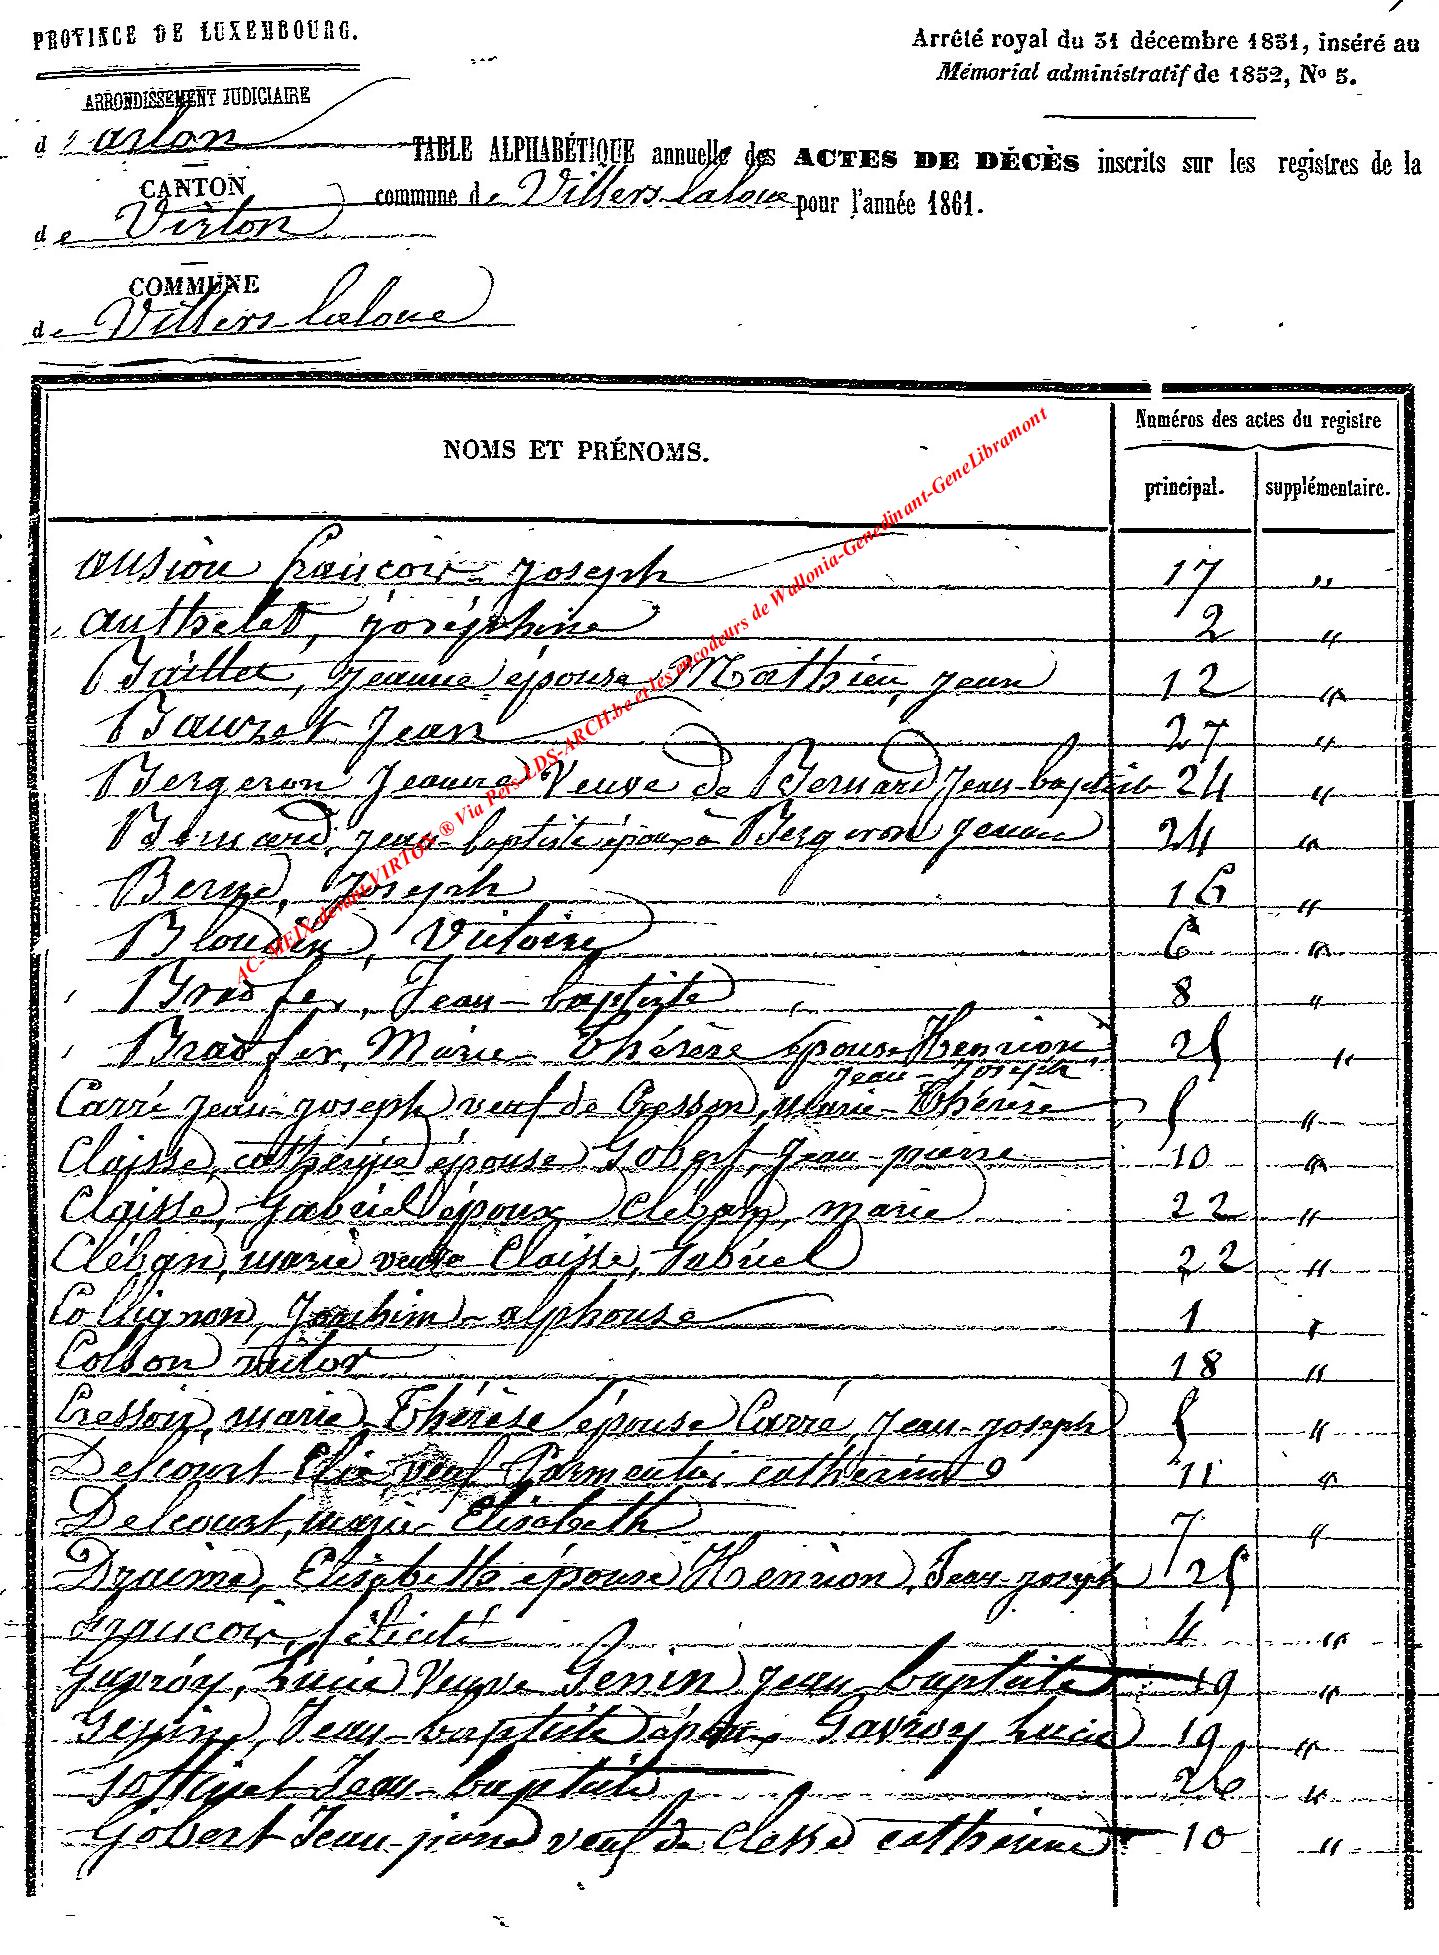 PROVINCE DE LUXEMBOURG.
Arrêté royal du 31 décembre 1831, inséré au
Mémorial administratif de 1832, No 5.
ARRONDISSEMENT JUDICIAIRE
d'arlon
TABLE ALPHABÉTIQUE annuelle des ACTES DE DÉCÈS inscrits sur les registres de la
commune de Villers-laloue pour l'année 1861.
CANTON
de Virton
COMMUNE
de Villers-laloue
NOMS ET PRÉNOMS.
Numéros des actes du registre
principal. supplémentaire.
AC- MEIX-devant-VIRTON ® Via Pers-LDS-ARCH.be et les encodeurs de Wallonia-Genedinant-GeneLibramont
ansion françois-joseph 17 "
authelet, joséphine 2 "
Baillu, jeanne épouse Mathieu, jean 12 "
Bauzet Jean 27 "
Bergeron Jeanne Veuve de Bernard Jean-baptiste 24 "
Bernard, jean-baptiste époux à Bergeron jeanne 24 "
Joseph 16 "
Blondin, Victoire 6 "
Bradfer, Jean-baptiste 8 "
Bradfer, Marie-thérèse épouse Henrion, 25 "
Jean-Joseph
Carré jean-joseph veuf de Cresson, marie-thérèse 5 "
Claisse, catherine épouse Gobert, Jean-pierre 10 "
Claisse, Gabriel époux Cléban, marie 22 "
Cléban, marie veuve Claisse, Gabriel 22 "
Collignon, Joachim-alphonse 1 "
Colson victor 18 "
Cresson, marie-Thérèse épouse Carré, Jean-joseph 5 "
Delcourt Elie veuf Parmentier catherine 11 "
Delcourt, marie-Elisabeth 7 "
Draime, Elisabeth épouse Henrion, Jean-joseph 25
François, félicité 4 "
Gavroy, Lucie Veuve Genin jean-baptiste 19 "
Genin, Jean-baptiste époux Gavroy Lucie 19 "
Jean-baptiste 26 "
Gobert Jean-pierre veuf de Clesse catherine 10 "